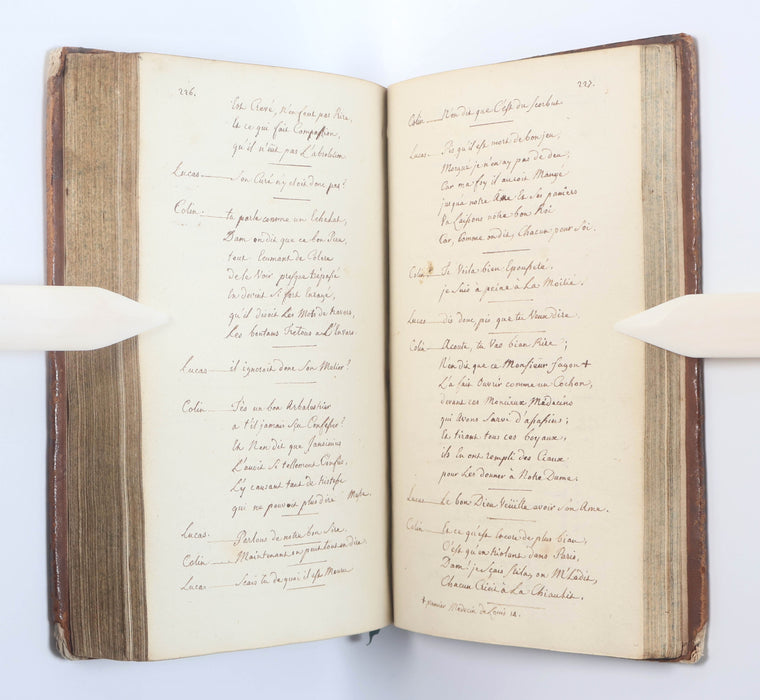 226.
Est Crevé, n'en font pas Rire,
Et ce qui fait Compassion,
qu'il n'eut pas L'absolution
Lucas — Son Curé n'y étoit donc pas?
Colin — tu parle comme un
Dam on dit que ce bon Pere,
tout Ecumant de Colere
de le Voir presque trépassé
En devint Si fort Enragé,
qu'il disoit Les Mots de travers,
Les boutans tretous a L'Envers
Lucas — il ignoroit donc Son Metier?
Colin — T'es un bon Arbalustrier
a t'il jamais Sçu Confesser?
Et N'en dit que Jansenius
L'avoit Si tellement Confus,
L'y causant tant de tristesse
qui ne pouvoit plus dire Messe.
Lucas. — Parlons de notre bon Sire.
Colin — Maintenant on peut tout en dire.
Lucas — Scais tu de quoi il est Mouru
227.
Colin — N'en dit que C'est du Scorbut
Lucas — qu'il est mort de bon jeu;
Morgué je n'en ay pas de deu;
Car ma foy il auroit Mangé
jusqu'a notre Ame Et Ses paniers
Laissons notre bon Roi
Car, Comme on dit, Chacun pour Soi.
Colin — Te Voila bien Epousseté.
je Suis a peine à La Moitié.
Lucas — dis donc, pis que tu Veux dire.
Colin — Acoute, tu Vas bian Rire;
N'en dit que ce Monsieur fagon +
L'a fait Ouvrir comme un Cochon,
devant ces Monsieux Madecins
qui Avons Sarvi d'assassins;
Et tirant tous ces boyaux,
ils En ont rempli des Ciaux
pour Les donner à Notre Dame.
Lucas — Le bon Dieu Veüille avoir S'on Ame.
Colin — Et ce qu'est Encore de plus biau,
C'est qu'en triolant dans Paris,
Dam! je Sçais Stila, on M'L'a dit,
Chacun Crioit à La Chianlit.
+ premier Medecin de Louis 14.